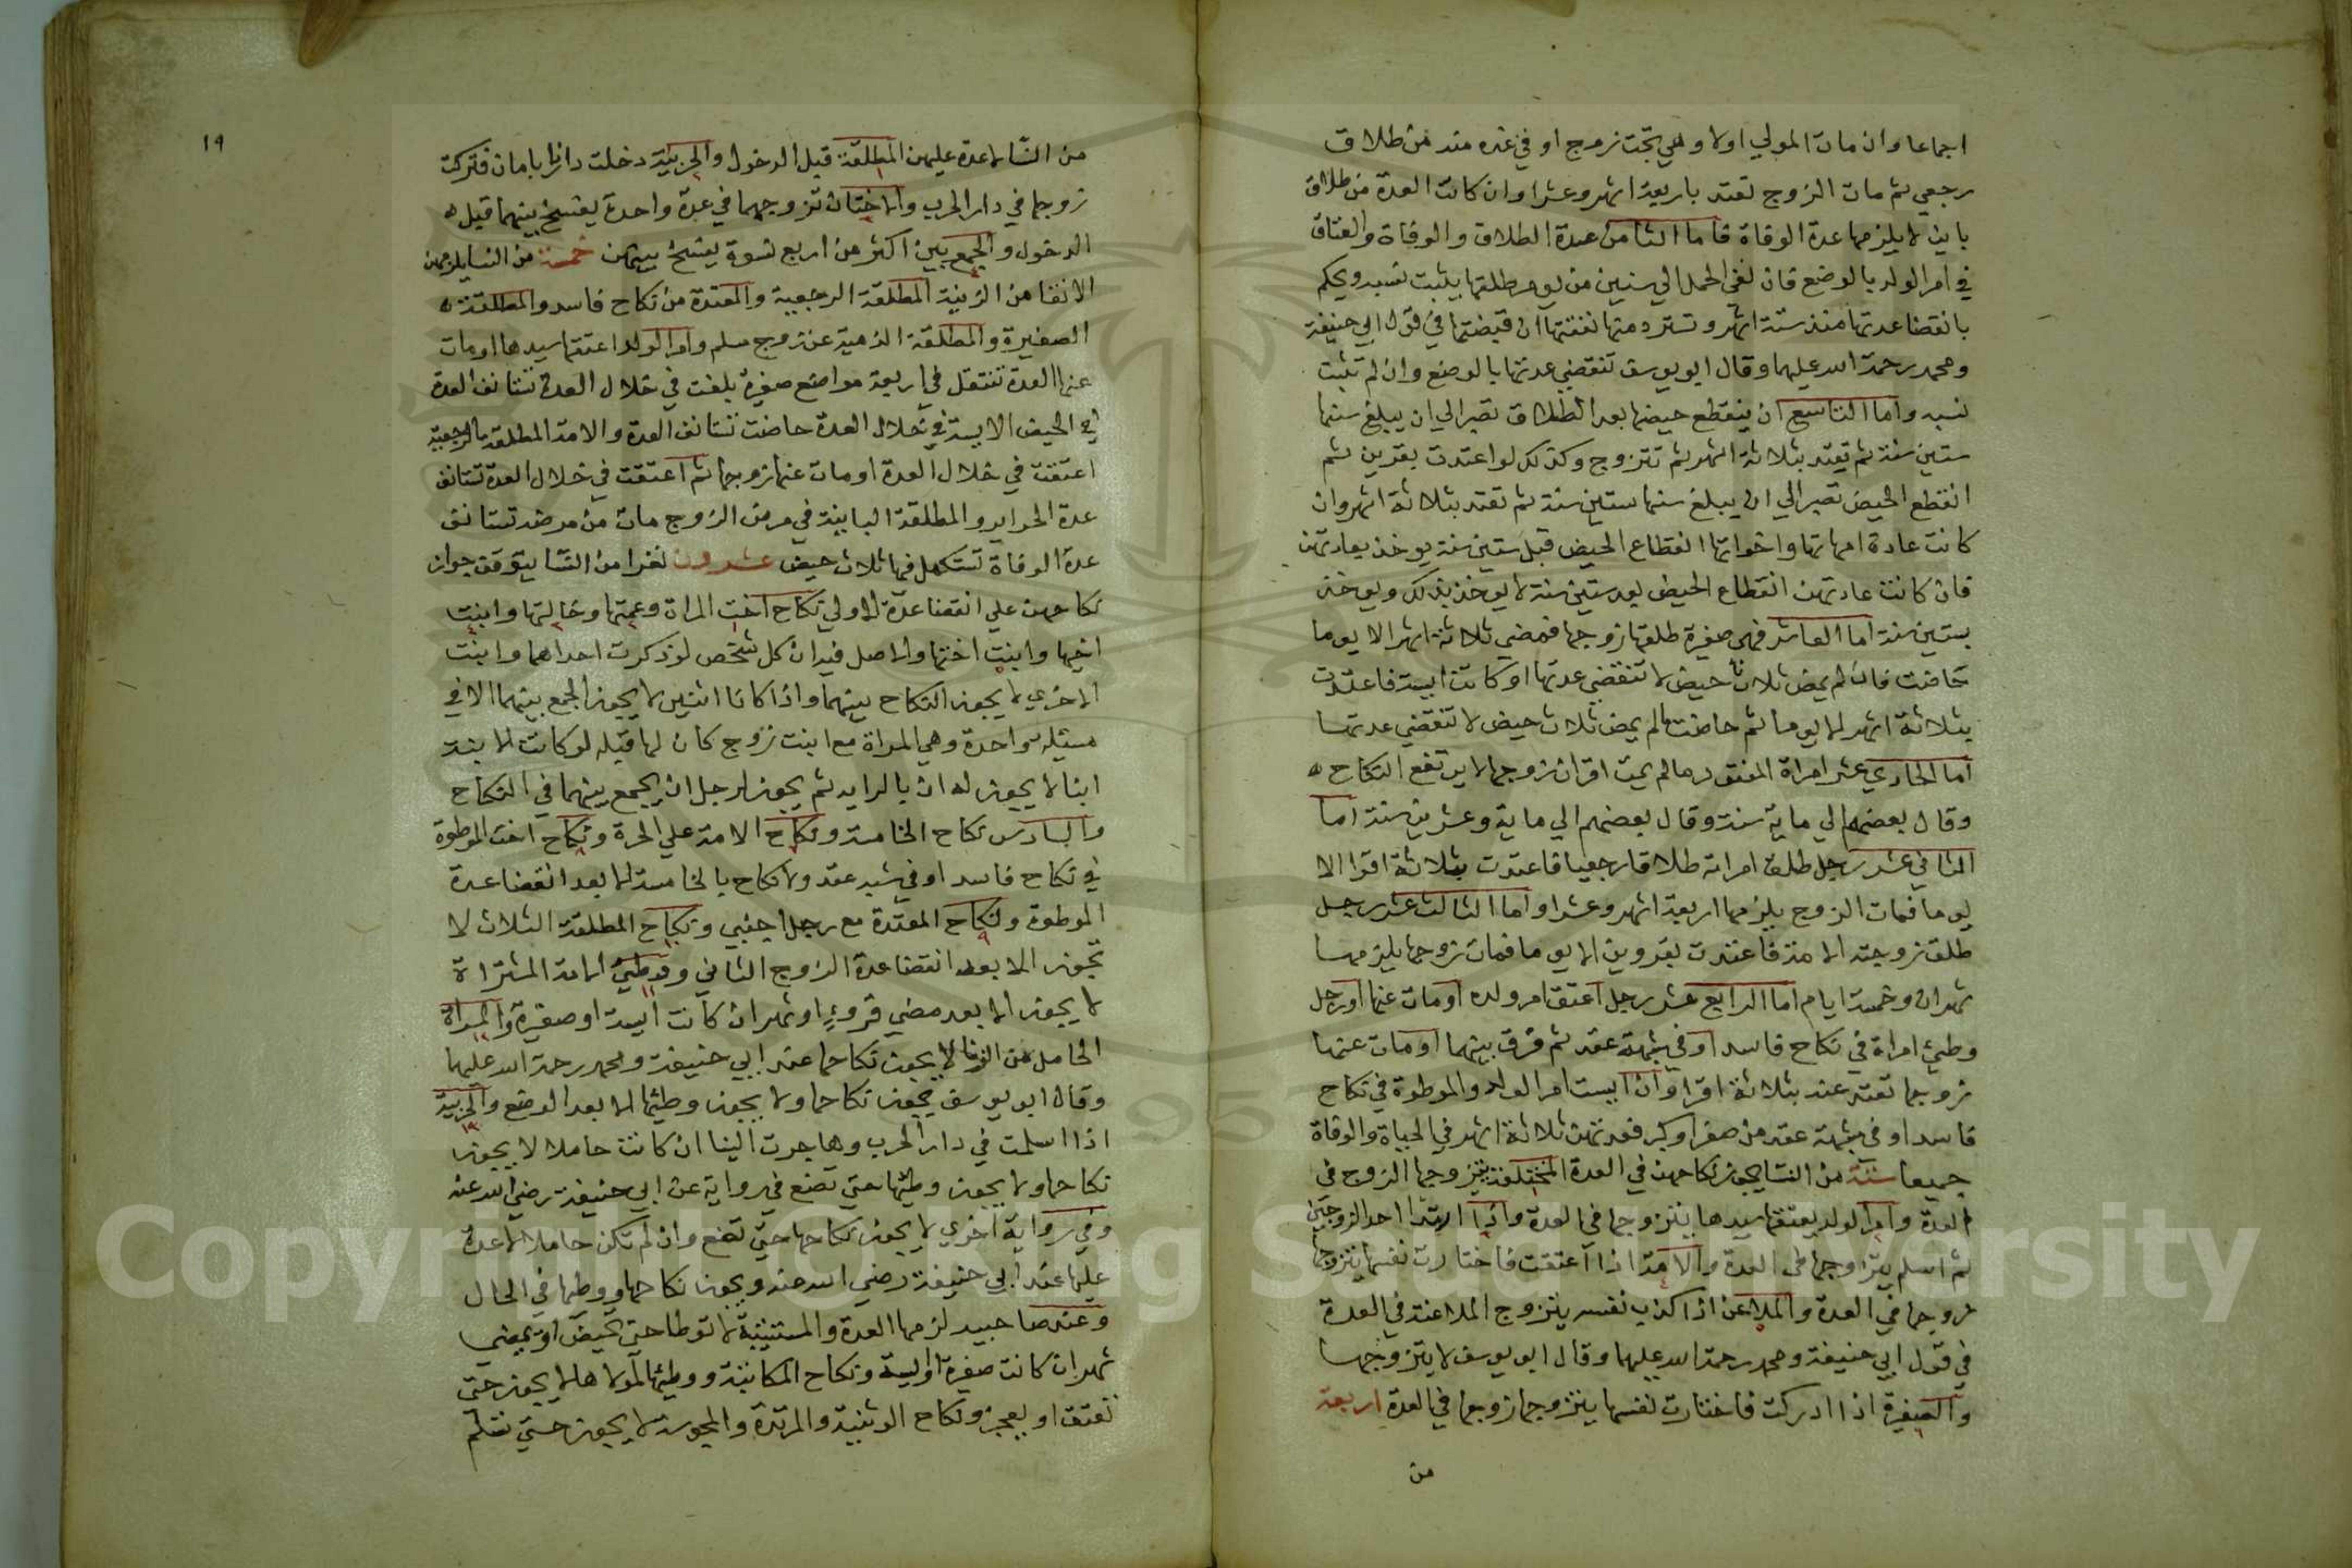 اجماعا وان مات المولي اولا وهي تحت زوج او في عدة منه من طلاق
رجعي ثم مات الزوج تعتد باربعة اشهر وعشرا وان كانت العدة من طلاق
باين لا يلزمها عدة الوفاة فاما الثامن عدة الطلاق والوفاة والعتاق
في ام الولد بالوضع فان نفي الحمل الي سنين من يوم طلقها يثبت نسبه ويحكم
بانقضا عدتها منذ ستة اشهر وتسترد منها نفقتها ان قبضتها في قول ابي حنيفة
ومحمد رحمة الله عليهما وقال ابو يوسف تنقضي عدتها بالوضع وان لم تثبت
نسبه واما التاسع ان ينقطع حيضها بعد الطلاق تصبر الي ان يبلغ سنها
ستين سنة ثم تعتد بثلاثة اشهر ثم تتزوج وكذلك لو اعتدت بقرين ثم
انقطع الحيض تصبر الي ان يبلغ سنها ستين سنة ثم تعتد بثلاثة اشهر وان
كانت عادة امهاتها واخواتها انقطاع الحيض قبل ستين سنة يوخذ بعادتهن
فان كانت عادتهن انقطاع الحيض بعد ستين سنة لا يوخذ بذلك ويوخذ
بستين سنة اما العاشر فهي صغيرة طلقها زوجها فمضي ثلاثة اشهر الا يوما
حاضت فان لم يمض ثلاث حيض لا تنقضي عدتها او كانت ايسة فاعتدت
بثلاثة اشهر الا يوما ثم حاضت ما لم يمض ثلاث حيض لا تنقضي عدتها
اما الحادي عشر امراة المفقود ما لم يمت اقران زوجها لا يرتفع النكاح
وقال بعضهم الي ماية سنة وقال بعضهم الي ماية وعشرين سنة اما
الثاني عشر رجل طلق امراته طلاقا رجعيا فاعتدت بثلاثة اقرا الا
يوما فمات الزوج يلزمها اربعة اشهر وعشرا واما الثالث عشر رجل
طلق زوجته الامة فاعتدت بقروين الا يوما فمات زوجها يلزمها
شهران وخمسة ايام اما الرابع عشر رجل اعتق ام ولده او مات عنها او رجل
وطيء امراة في نكاح فاسد او في شبهة عقد ثم فرق بينهما او مات عنها
زوجها تعتد عنه بثلاثة اقرا وان ايست ام الولد والموطوة في نكاح
فاسد او في شبهة عقد من صغر او كبر فعدتهن ثلاثة اشهر في الحياة والوفاة
جميعا ستة من النسا يجوز نكاحهن في العدة المختلعة يتزوجها الزوج في
العدة وام الولد يعتقها سيدها يتزوجها في العدة واذا ارتدا احد الزوجين
ثم اسلم يتزاوجها في العدة والامة اذا اعتقت فاختارت نفسها يتزوجها
زوجها في العدة والملاعن اذا اكذب نفسه يتزوج الملاعنة في العدة
في قول ابي حنيفة ومحمد رحمة الله عليهما وقال ابو يوسف لا يتزوجها
والصغيرة اذا ادركت فاختارت نفسها يتزوجها زوجها في العدة اربعة
من
١٩
من النسا لا عدة عليهن المطلقة قبل الدخول والحربية دخلت دارنا بامان فتركت
زوجها في دار الحرب والاختان تزوجهما في عدة واحدة يفسخ بينهما قبل
الدخول والجمع بين اكثر من اربع نسوة يفسخ بينهن خمسة من النسا يلزمهن
الانقا من الزينة المطلقة الرجعية والمعتدة من نكاح فاسد والمطلقة
الصغيرة والمطلقة الذمية عن زوج مسلم وام الولد اعتقها سيدها او مات
عنها العدة تنتقل في اربعة مواضع صغيرة بلغت في خلال العدة تستانف العدة
في الحيض الايسة في خلال العدة حاضت تستانف العدة والامة المطلقة بالرجعية
اعتقت في خلال العدة او مات عنها زوجها ثم اعتقت في خلال العدة تستانف
عدة الحراير والمطلقة الباينة في مرض الزوج مات من مرضه تستانف
عدة الوفاة تستكمل فيها ثلاث حيض عشرون نفرا من النسا يتوقف جواز
نكاحهن علي انقضا عدة الاولي نكاح اخت المراة وعمتها وخالتها وابنت
اخيها وابنت اختها والاصل فيه ان كل شخص لو ذكرت احداهما وابنت
الاخري لا يجوز النكاح بينهما واذا كانا اثنين لا يجوز الجمع بينهما الا في
مسئلة واحدة وهي المراة مع ابنت زوج كان لها قبله لو كانت الابنة
ابنا لا يجوز له ان بالرايه ثم يجوز لرجل ان يجمع بينهما في النكاح
والسادس نكاح الخامسة ونكاح الامة علي الحرة ونكاح اخت الموطوة
في نكاح فاسد او في شبه عقد ولا نكاح بالخامسة الا بعد انقضا عدة
الموطوة ونكاح المعتدة مع رجل اجنبي ونكاح المطلقة الثلاث لا
تجوز الا بعد انقضا عدة الزوج الثاني ووطيء الامة المشتراة
لا يجوز الا بعد مضي قروء او شهر ان كانت ايسة او صغيرة والمراة
الحامل من الزنا لا يجوز نكاحها عند ابي حنيفة ومحمد رحمة الله عليهما
وقال ابو يوسف يجوز نكاحها ولا يجوز وطيها الا بعد الوضع والحربية
اذا اسلمت في دار الحرب وهاجرت الينا ان كانت حاملا لا يجوز
نكاحها ولا يجوز وطيها حتي تضع في رواية عن ابي حنيفة رضي الله عنه
وفي رواية اخري لا يجوز نكاحها حتي تضع وان لم تكن حاملا لا عدة
عليها عند ابي حنيفة رضي الله عنه ويجوز نكاحها ووطيها في الحال
وعند صاحبيه لزمها العدة والمستبية لا توطا حتي تحيض او يمضي
شهر ان كانت صغيرة او ايسة ونكاح المكاتبة ووطيها لمولاها لا يجوز حتي
تعتق او يعجز ونكاح الوثنية والمرتدة والمجوسة لا يجوز حتي تسلم
Copyright © King Saud University